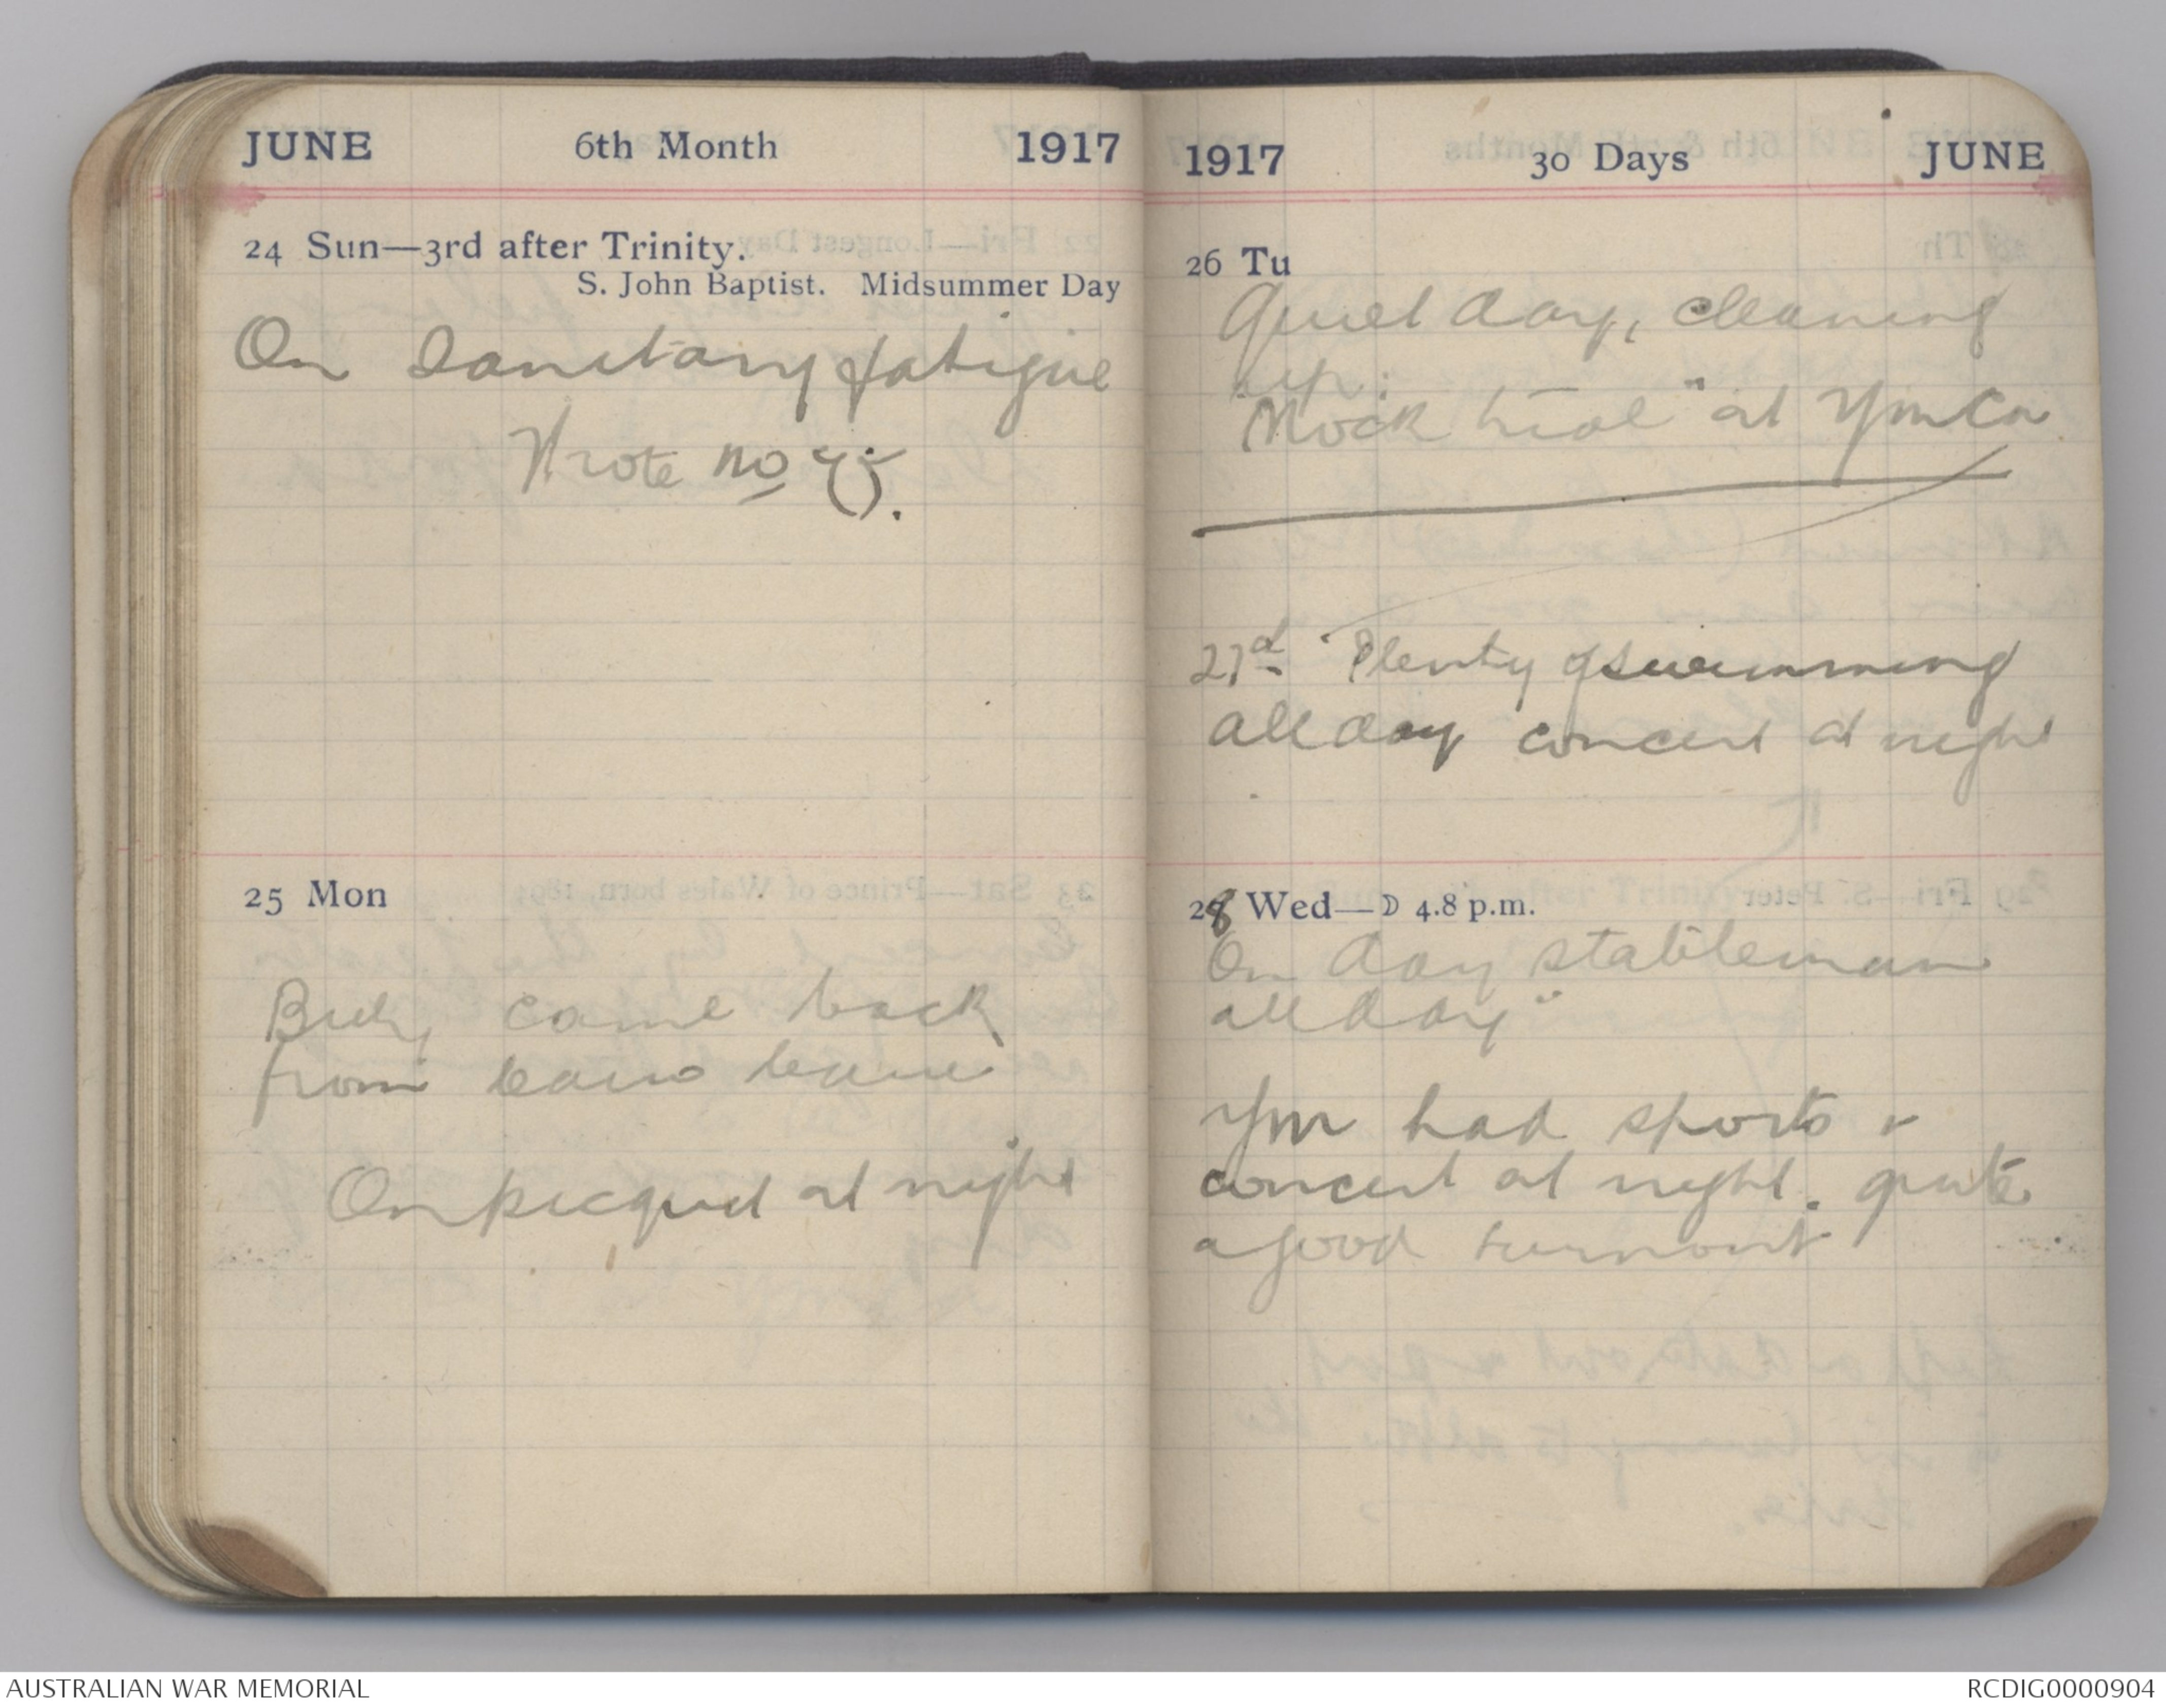 JUNE 6th Month 1917
24 Sun—3rd after Trinity.
S. John Baptist. Midsummer Day
On Sanitary fatigue
Wrote no
25 Mon
came back
from leave
On picquet at night
1917 30 Days JUNE
26 Tu
Quiet day, cleaning
up:
"Mock trial" at Ymca
27d Plenty of swimming
all day concert at night
28 Wed—☽ 4.8 p.m.
On day stableman
all day"
had sports &
concert at night. quite
a good turnout
AUSTRALIAN WAR MEMORIAL
RCDIG0000904